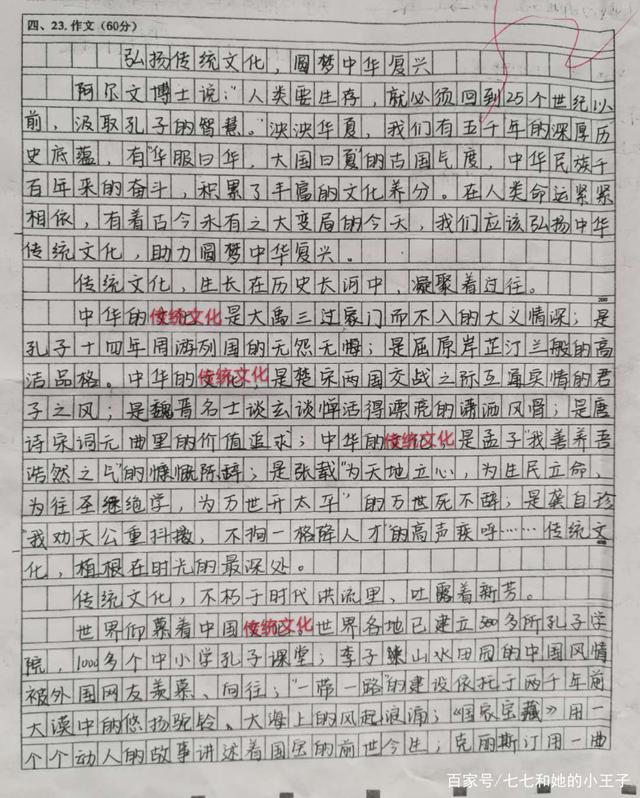 四、23.作文(60分)
弘扬传统文化,圆梦中华复兴
阿尔文博士说:"人类要生存,就必须回到25个世纪以
前,汲取孔子的智慧。"泱泱华夏,我们有五千年的深厚历
史底蕴,有"华服曰华,大国曰夏"的古国气度,中华民族千
百年来的奋斗,积累了丰富的文化养分。在人类命运紧紧
相依,有着古今未有之大变局的今天,我们应该弘扬中华
传统文化,助力圆梦中华复兴。
传统文化,生长在历史长河中,凝聚着过往。
200
中华的传统文化是大禹三过家门而不入的大义情深;是
孔子十四年周游列国的无怨无悔;是屈原岸芷汀兰般的高
洁品格。中华的传统文化是楚宋两国交战之际互通实情的君
子之风;是魏晋名士谈玄谈惮活得漂亮的潇洒风骨;是唐
诗宋词元曲里的价值追求;中华的传统文化是孟子"我善养吾
浩然之气"的慷慨陈辞;是张载"为天地立心,为生民立命,
为往圣继绝学,为万世开太平"的万世死不辞;是龚自珍
"我劝天公重抖擞,不拘一格降人才"的高声疾呼……传统文
化,植根在时光的最深处。
传统文化,不朽于时代洪流里、吐露着新芳。
世界仰慕着中国传统文化世界各地已建立500多所孔子学
院,1000多个中小学孔子课堂;李子柒山水田园的中国风情
被外国网友羡慕、向往;"一带一路"的建设依托于两千年前
大漠中的悠扬驼铃、大海上的风起浪涌;《国家宝藏》用一
个个动人的故事讲述着国宝的前世今生;克丽斯汀用一曲
百家号/七七和她的小王子